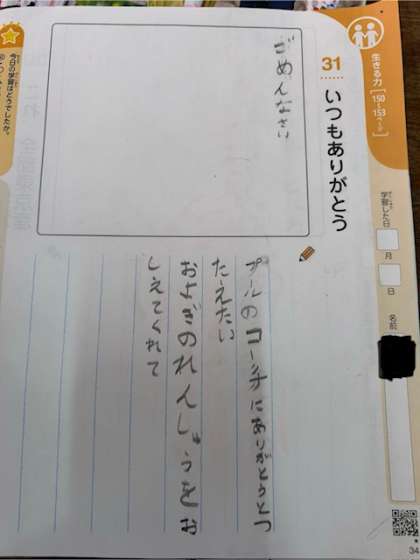 生きる力
[150~153ページ]
31
いつもありがとう
学習した日
月
日
名前
ごめんなさい
プールのコーチにありがとうとつ
たえたい
およぎのれんしゅうをお
しえてくれて
今日の学習はどうでしたか。